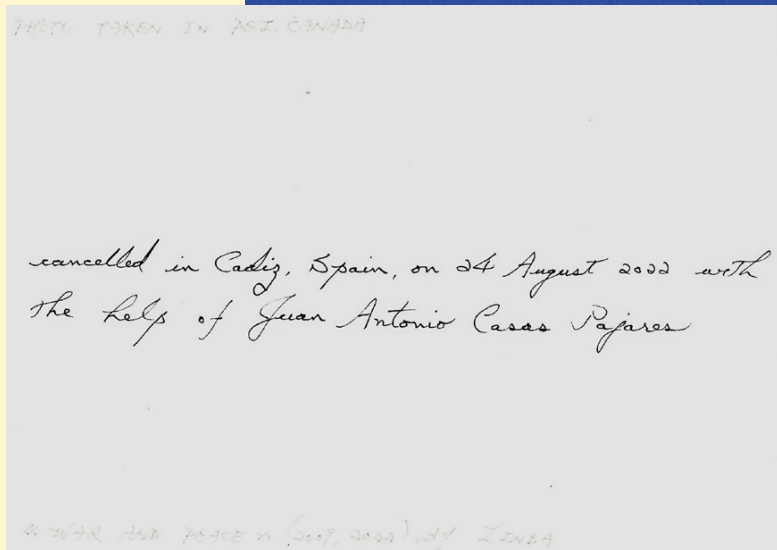 PHOTO TAKEN IN PEI. CANADA
cancelled in Cadiz, Spain, on 24 August 2022 with
the help of Juan Antonio Casas Pajares
« WAR AND PEACE » (2007, 2022) BY LINDA